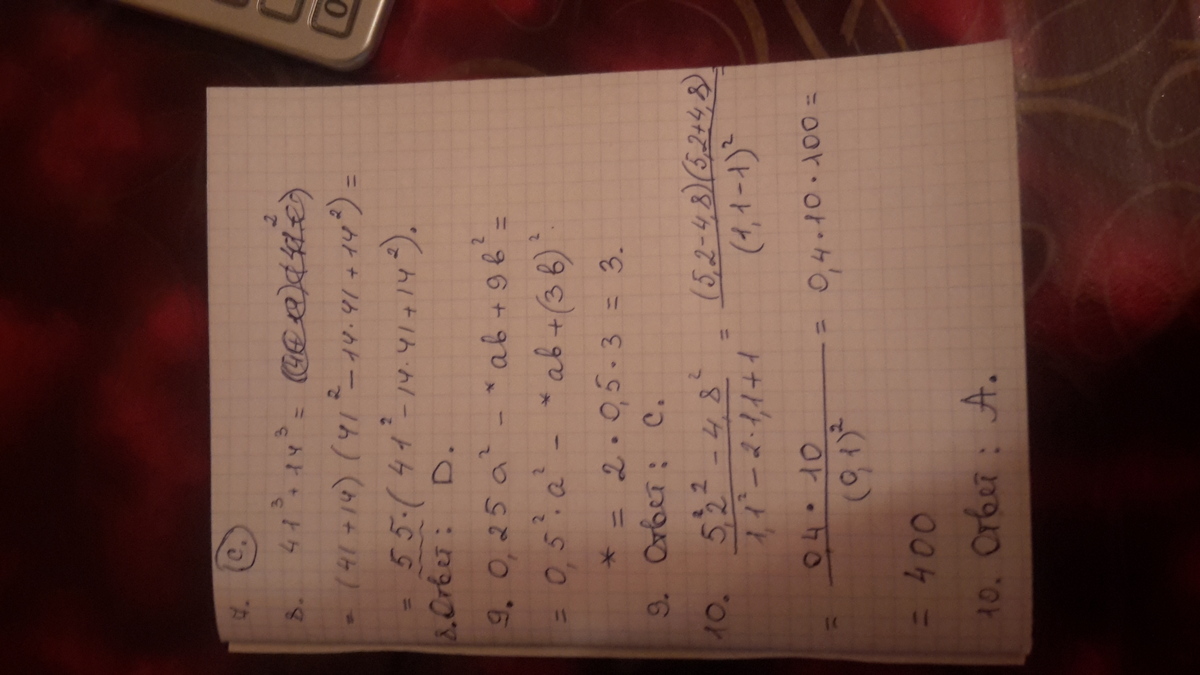 7. C.
8. 41³ + 14³ =
= (41 + 14) (41² − 14·41 + 14²) =
= 55·(41² − 14·41 + 14²).
8. Ответ: D.
9. 0,25 a² − *ab + 9b² =
= 0,5²·a² − *ab + (3b)².
* = 2·0,5·3 = 3.
9. Ответ: C.
10. (5,2² − 4,8²) / (1,1² − 2·1,1 + 1) = ((5,2 − 4,8)(5,2 + 4,8)) / (1,1 − 1)² =
= (0,4·10) / (0,1)² = 0,4·10·100 =
= 400
10. Ответ: A.
0